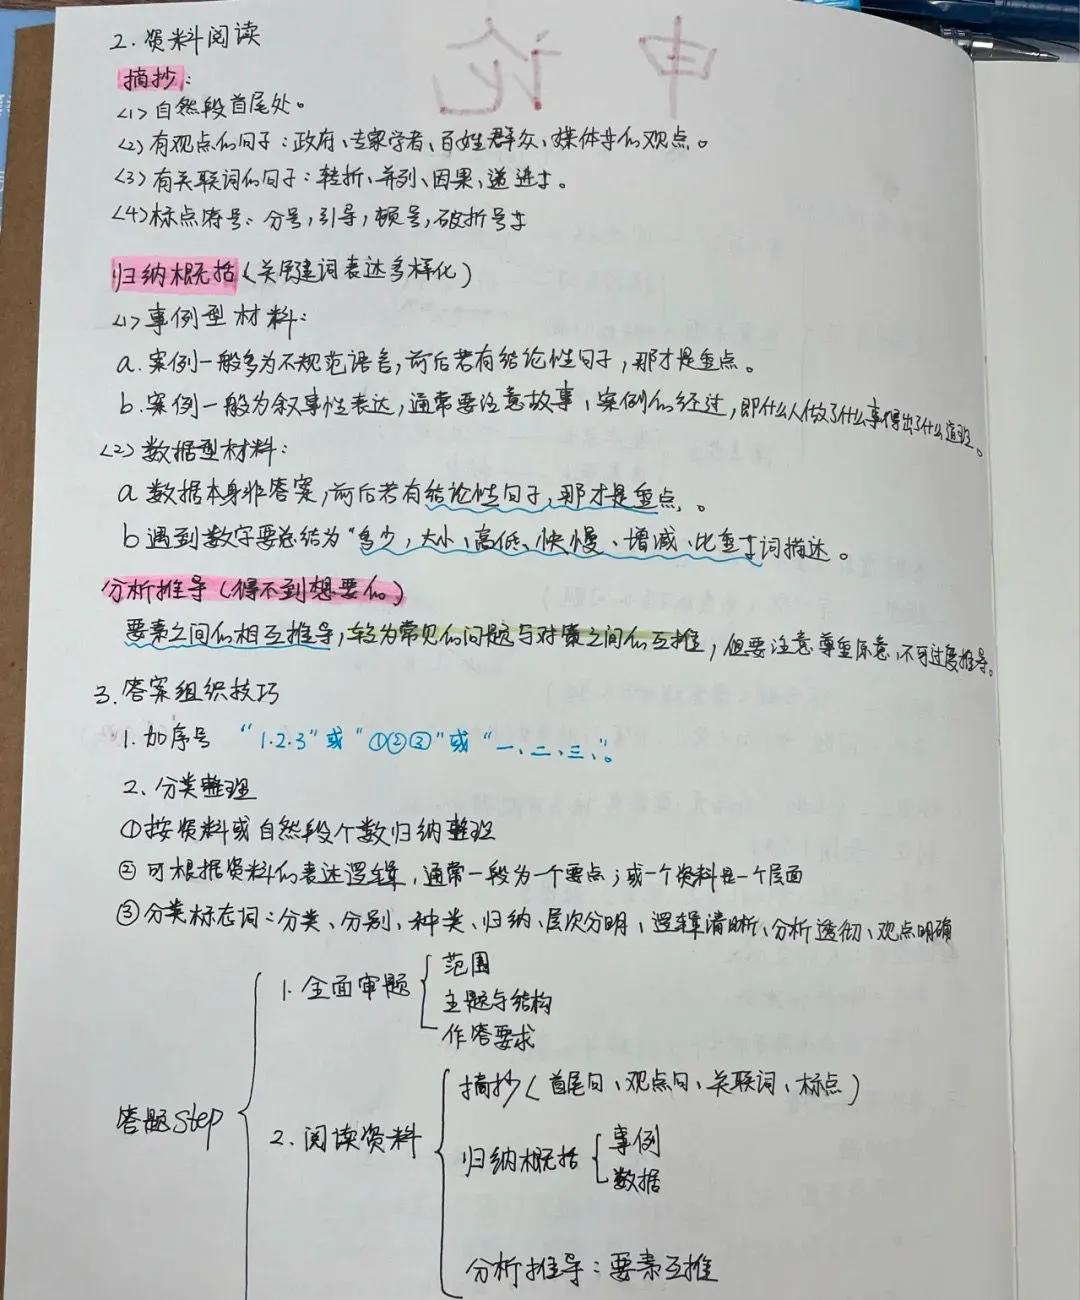 申论
2. 资料阅读
摘抄:
<1> 自然段首尾处。
<2> 有观点的句子:政府、专家学者、百姓群众、媒体等的观点。
<3> 有关联词的句子:转折、并列、因果、递进等。
<4> 标点符号:分号,引导,顿号,破折号等
归纳概括(关键词表达多样化)
<1> 事例型材料:
a. 案例一般多为不规范语言,前后若有结论性句子,那才是重点。
b. 案例一般为叙事性表达,通常要注意故事、案例的经过,即什么人做了什么事得出了什么道理。
<2> 数据型材料:
a 数据本身非答案,前后若有结论性句子,那才是重点。
b 遇到数字要总结为“多少,大小、高低、快慢、增减、比重等词描述。
分析推导(得不到想要的)
要素之间的相互推导,较为常见的问题与对策之间的互推,但要注意尊重原意,不可过度推导。
3. 答案组织技巧
1. 加序号 “1.2.3”或“①②③”或“一、二、三、”。
2、分类整理
①按资料或自然段个数归纳整理
② 可根据资料的表达逻辑,通常一段为一个要点;或一个资料是一个层面
③ 分类标志词:分类、分别、种类、归纳、层次分明,逻辑清晰、分析透彻、观点明确
答题Step
1. 全面审题
范围
主题与结构
作答要求
2. 阅读资料
摘抄(首尾句、观点句、关联词、标点)
归纳概括
事例
数据
分析推导:要素互推